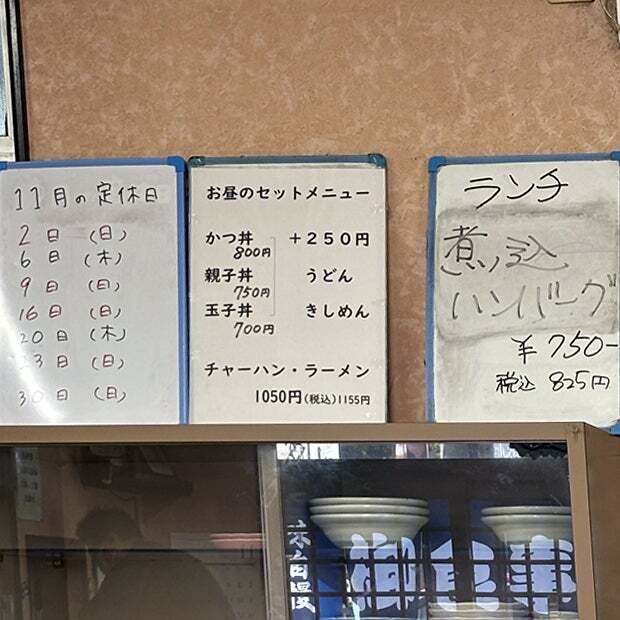 11月の定休日
2日 (日)
6日 (木)
9日 (日)
16日 (日)
20日 (木)
23日 (日)
30日 (日)
お昼のセットメニュー
かつ丼 +250円
800円
親子丼 うどん
750円
玉子丼 きしめん
700円
チャーハン・ラーメン
1050円(税込)1155円
ランチ
煮込
ハンバーグ
¥750-
税込 825円
味自慢
御食事